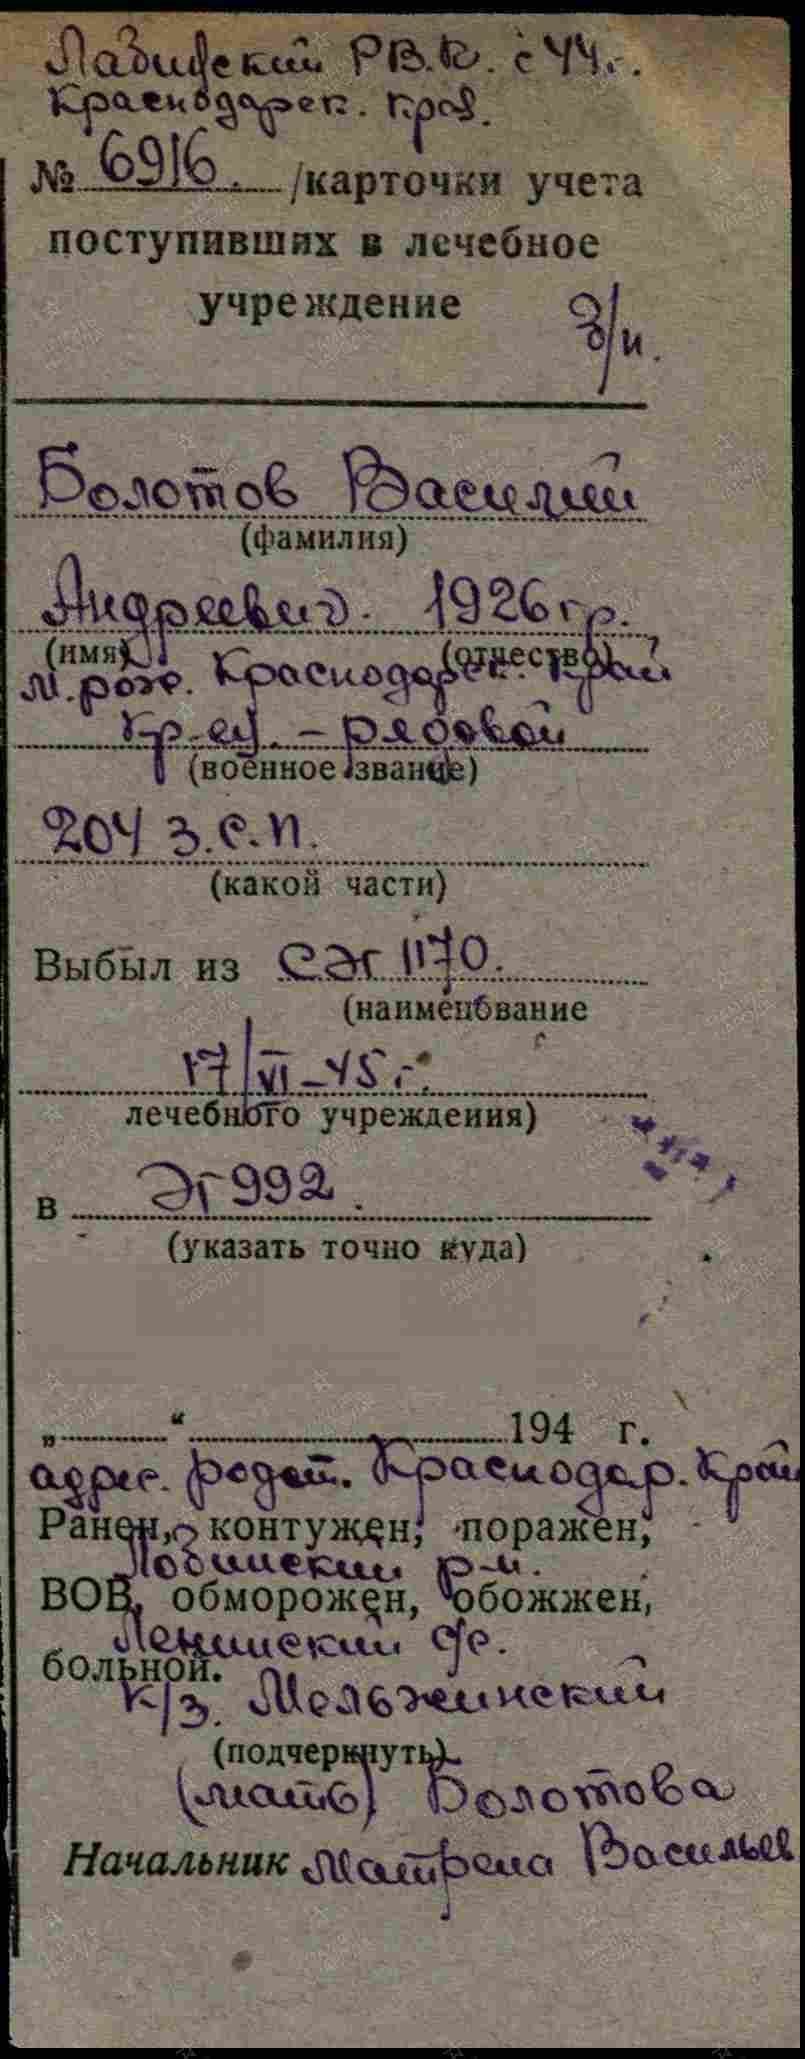 Лабинский Р.В.К. с 44 г.
Краснодарск. края.
№ 6916. /карточки учета
поступивших в лечебное
учреждение
б/и.
Болотов Василий
(фамилия)
Андреевич. 1926 гр.
(имя) (отчество)
м. рож. Краснодарск. край
кр-ец. – рядовой
(военное звание)
204 З.С.П.
(какой части)
Выбыл из СЭГ 1170.
(наименование
17/VI–45 г.
лечебного учреждения)
в ЭГ 992.
(указать точно куда)
„ “ 194 г.
адрес. родит. Краснодар. край
Ранен, контужен, поражен,
Лобинский р-н.
ВОВ, обморожен, обожжен,
Ленинский с/с.
больной.
к/з.
(подчеркнуть)
(мать) Болотова
Начальник Матрена Васильев